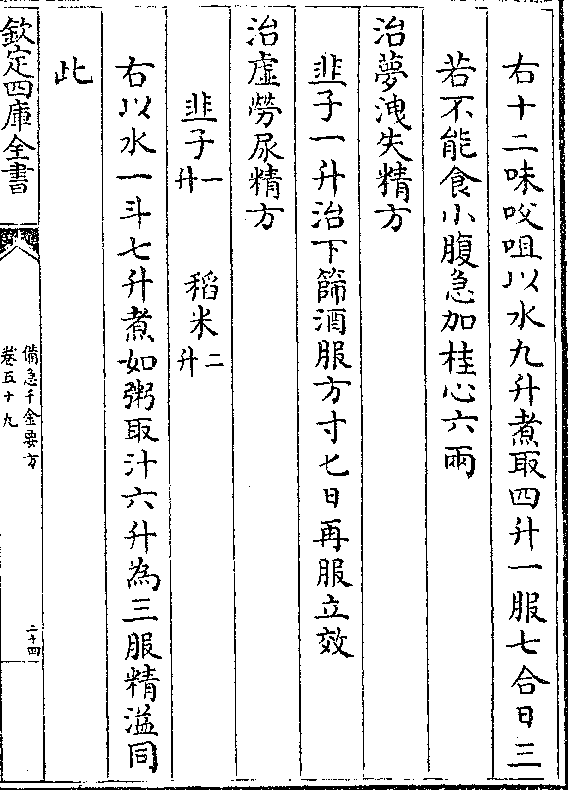 右十二味㕮咀以水九升煮取四升一服七合日三
若不能食小腹急加桂心六兩
治夢洩失精方
韭子一升治下篩酒服方寸匕日再服立效
治虛勞尿精方
韭子一升 稻米二升
右以水一斗七升煮如粥取汁六升為三服精溢同
此
欽定四庫全書
備急千金要方
卷五十九
二十四